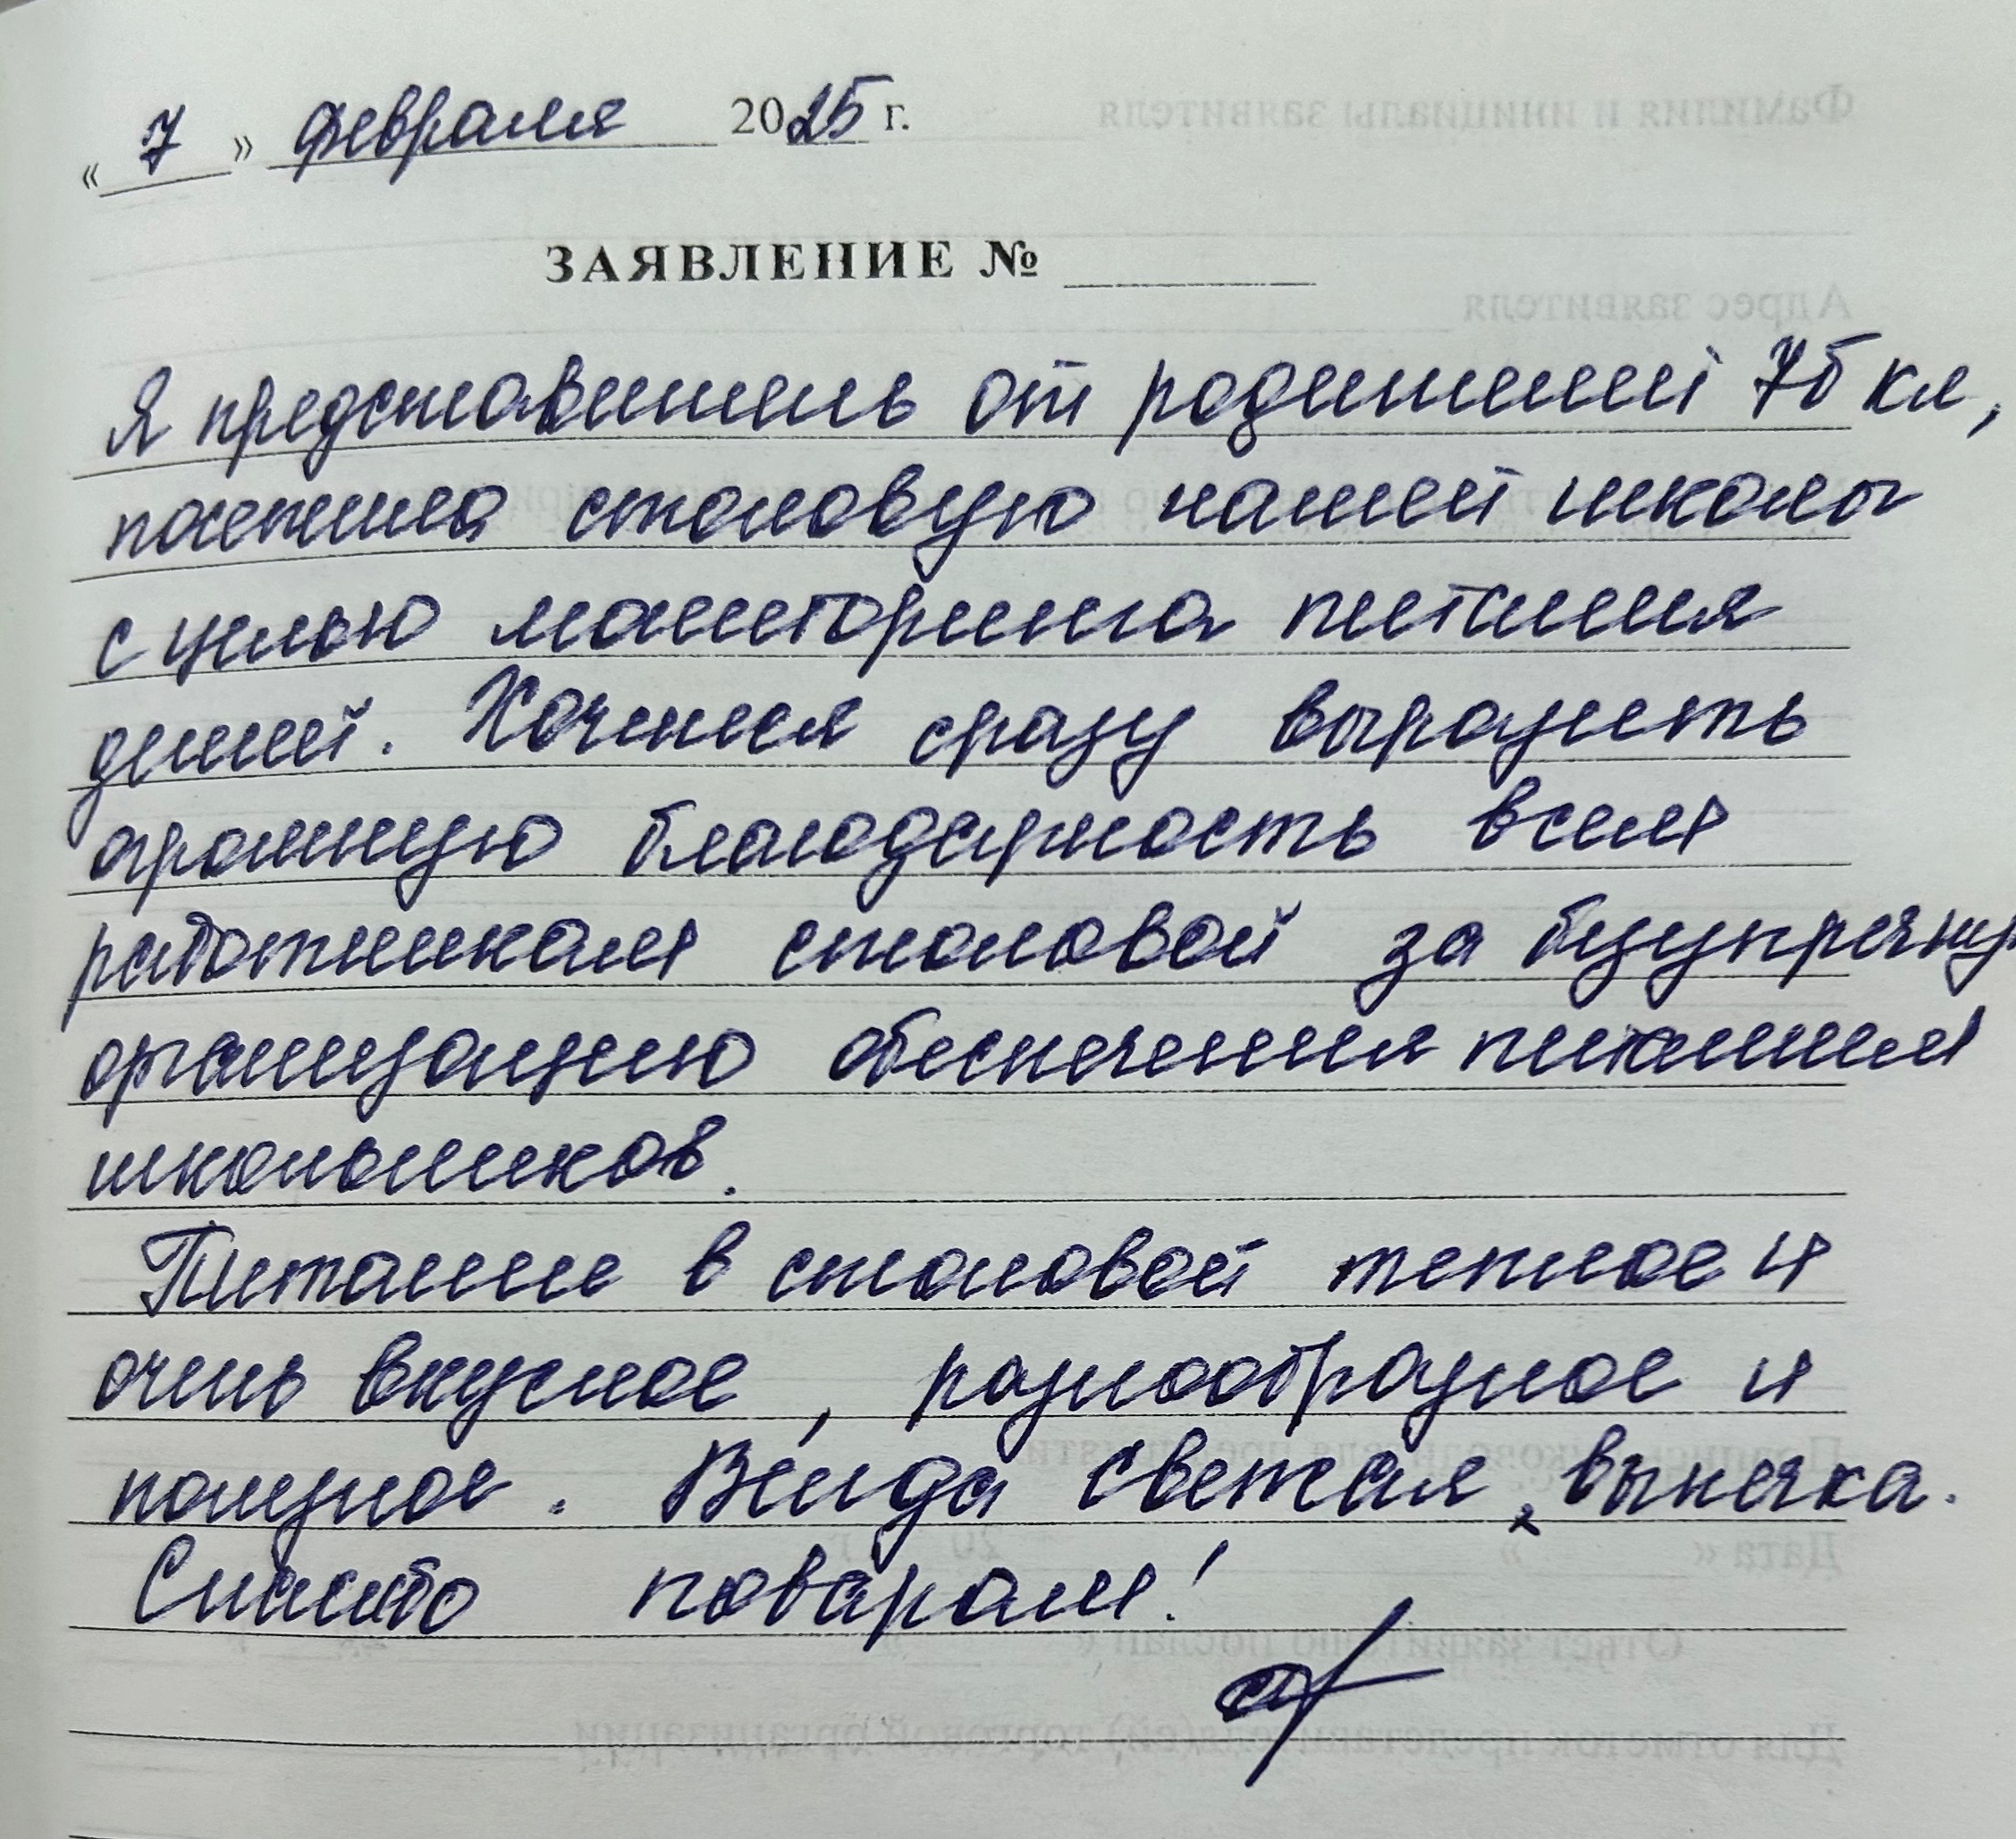 « 7 » февраля 2025 г.
ЗАЯВЛЕНИЕ №
Я представитель от родителей 7б кл,
посетила столовую нашей школы
с целью мониторинга питания
детей. Хочется сразу выразить
огромную благодарность всем
работникам столовой за безупречную
организацию обеспечения питанием
школьников.
Питание в столовой теплое и
очень вкусное, разнообразное и
полезное. Всегда свежая выпечка.
Спасибо поварам!